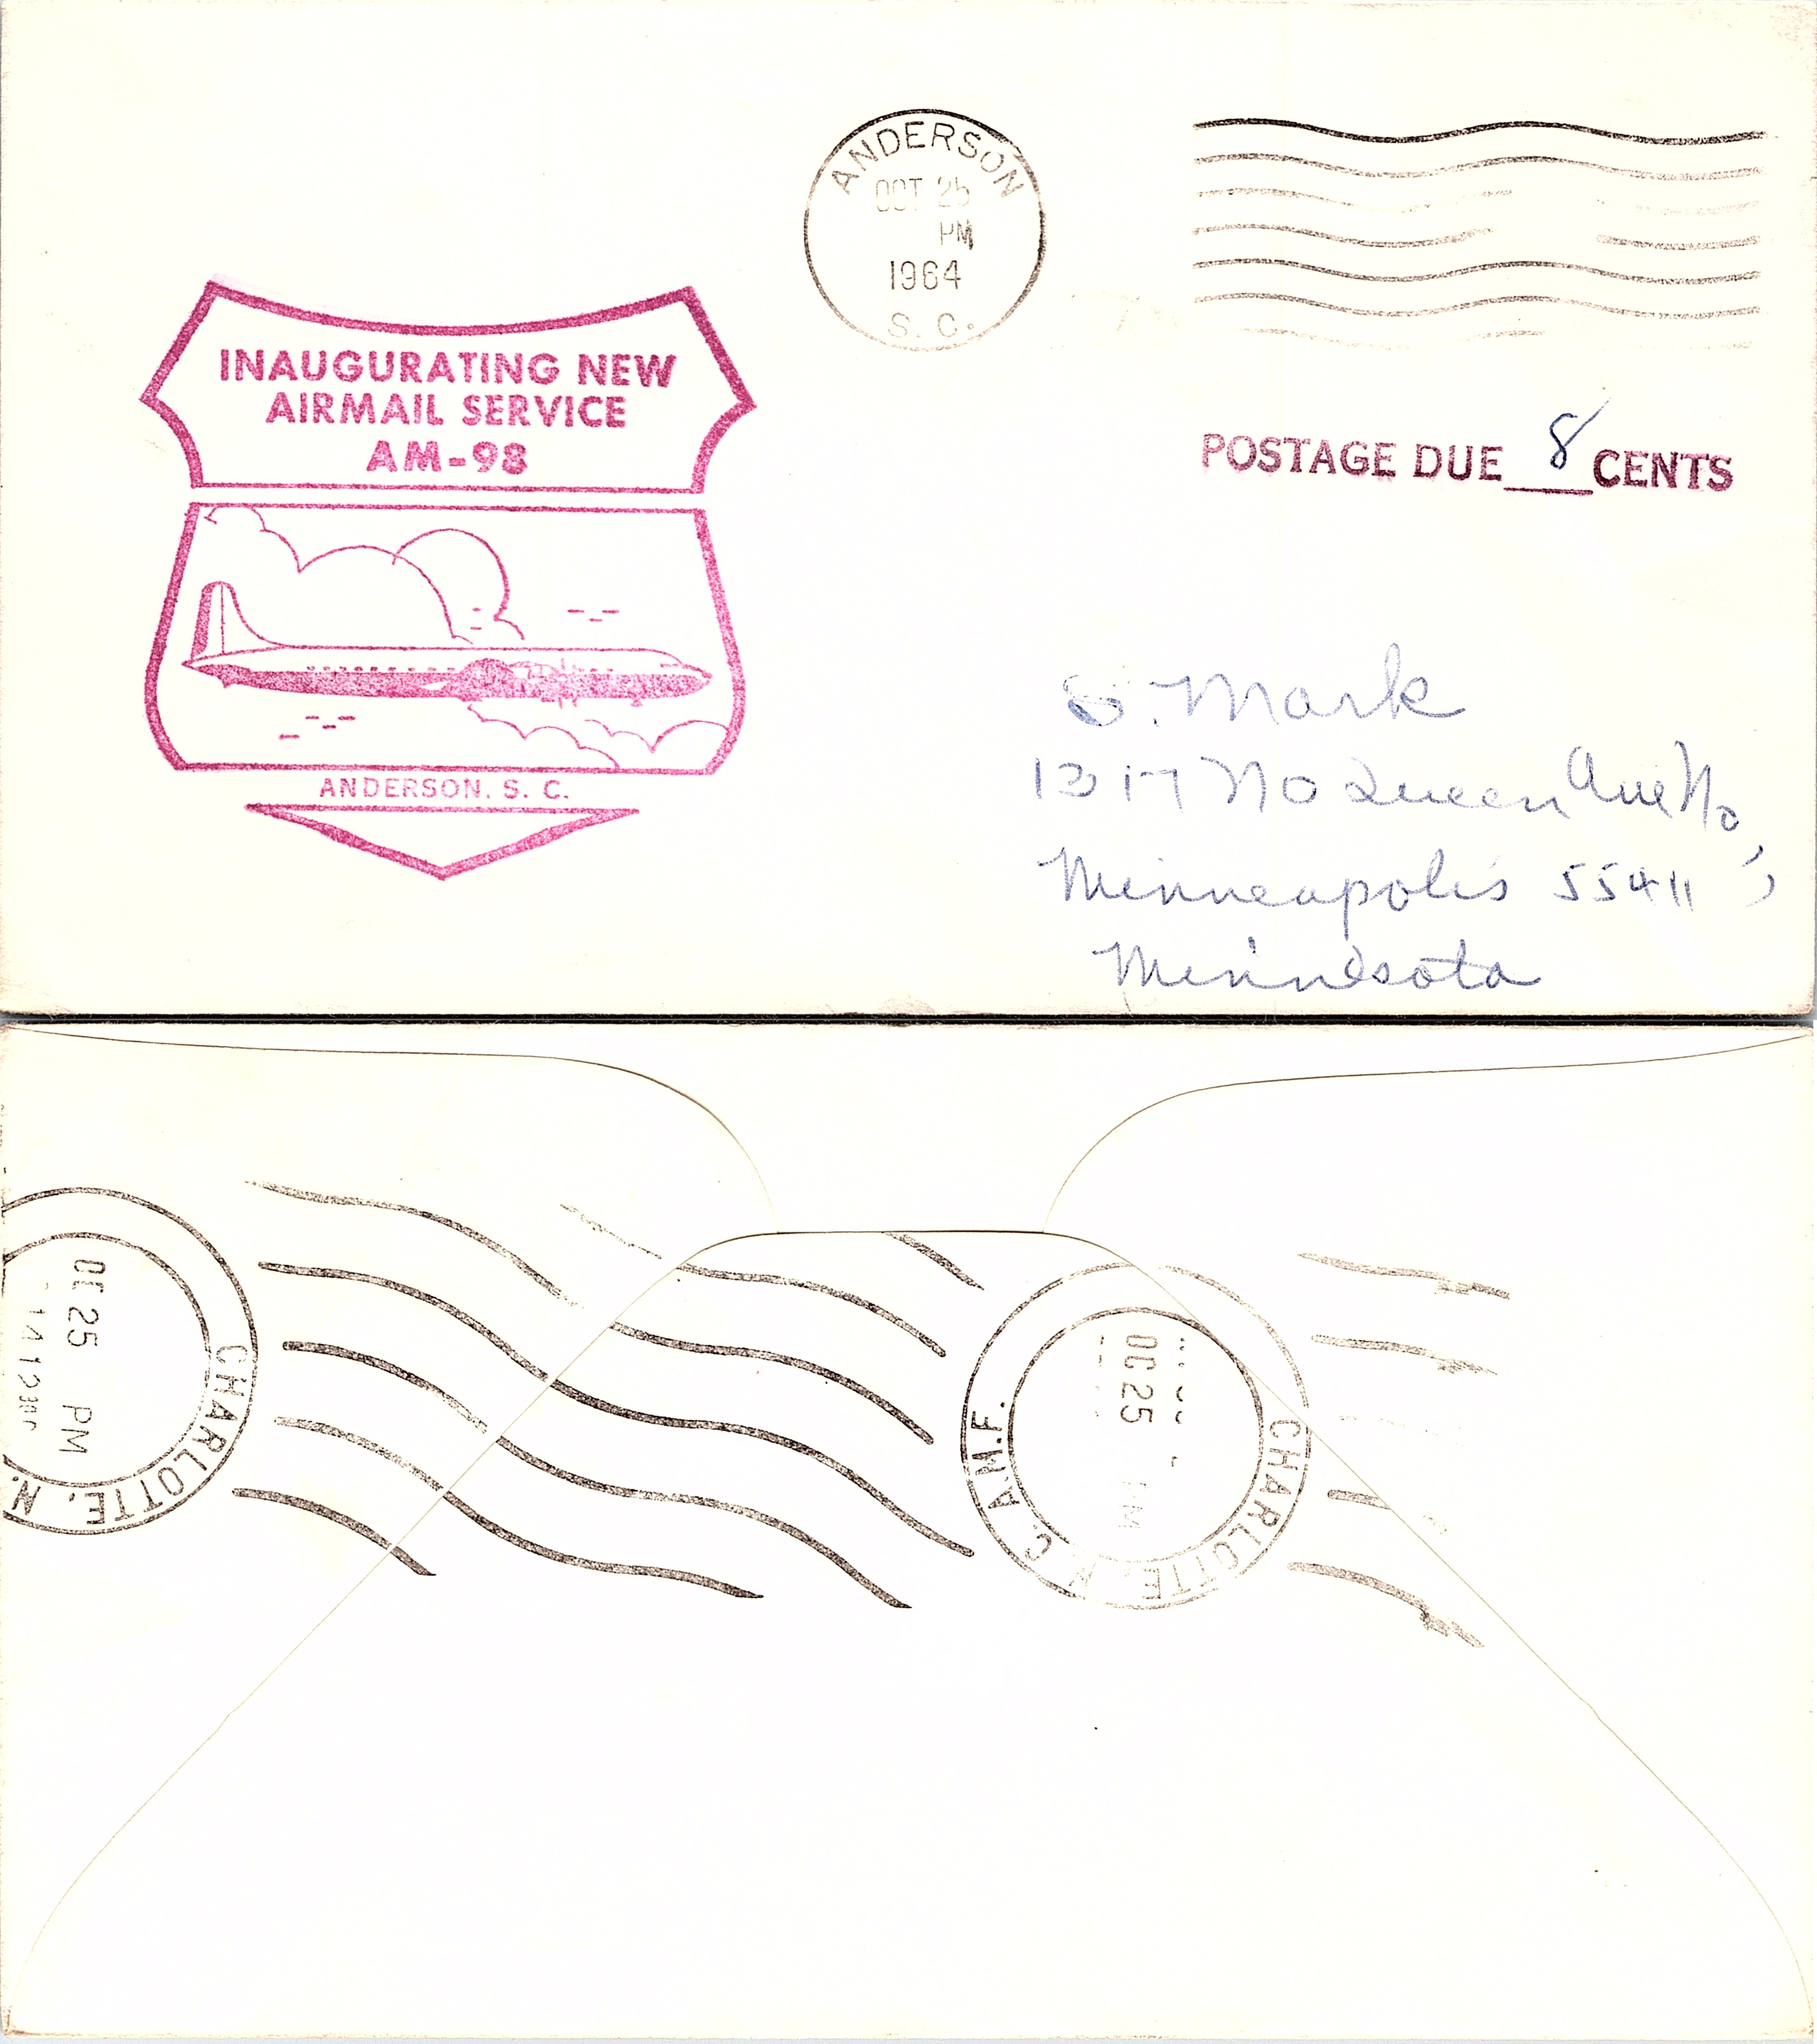 ANDERSON
OCT 25
PM
1964
S. C.
INAUGURATING NEW
AIRMAIL SERVICE
AM-98
ANDERSON. S. C.
POSTAGE DUE 8 CENTS
S. Mark
1317 No Queen Ave No,
Minneapolis 55411,
Minnesota
CHARLOTTE, N.
OC 25 PM
CHARLOTTE, N. C. A.M.F.
OC 25 PM